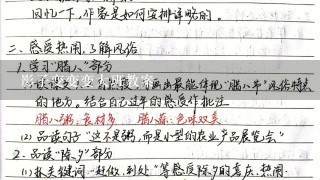 回忆一下,作家是如何安排详略的。
二、感受热闹,了解风俗
1. 学习“腊八”部分
画出最能体现“腊八节”风俗特点
的地方。结合自己过年的感受作批注
影子变变变大班教案
腊八粥:食材多 腊八蒜:色味双美
(2) 品读句子“这不是粥,而是小型的农业产品展览会”
2. 品读“除夕”部分
(1) 抓关键词,“赶做、到处”等感信除夕的喜庆、热闹